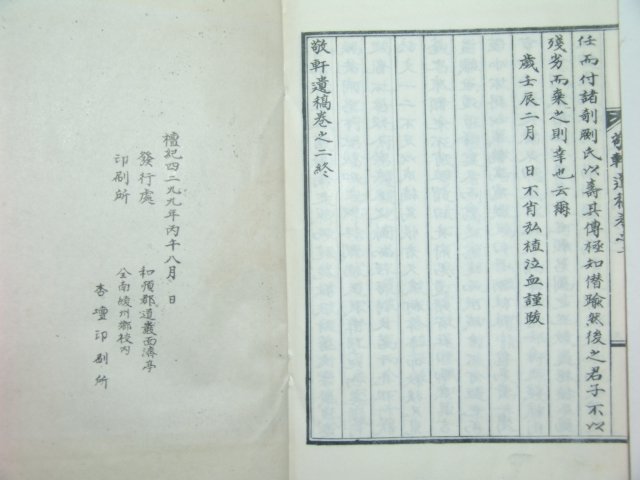 任而付諸剞劂氏以壽其傳極知僭踰然後之君子不以
殘劣而棄之則幸也云爾
歲壬辰二月 日不肖弘植泣血謹跋
敬軒遺稿卷之二終
敬軒遺稿卷之二
檀紀四二九九年丙午八月 日
發行處 和順郡道巖面濤亭
印刷所 全南綾州鄉校內
杏壇印刷所